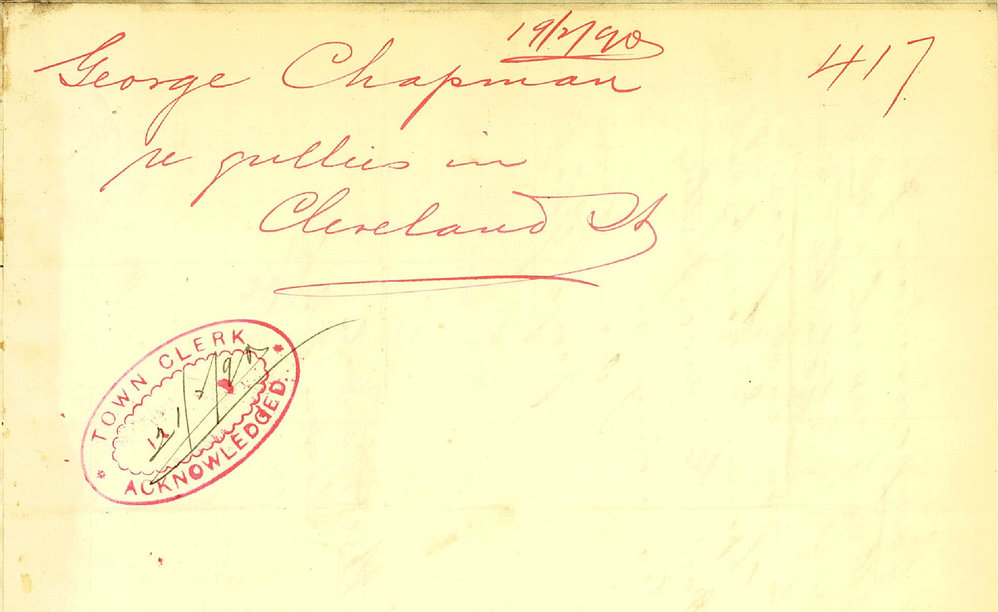 19/2/90
George Chapman 417
re gullies in
Cleveland St
TOWN CLERK
21/2/90
ACKNOWLEDGED.